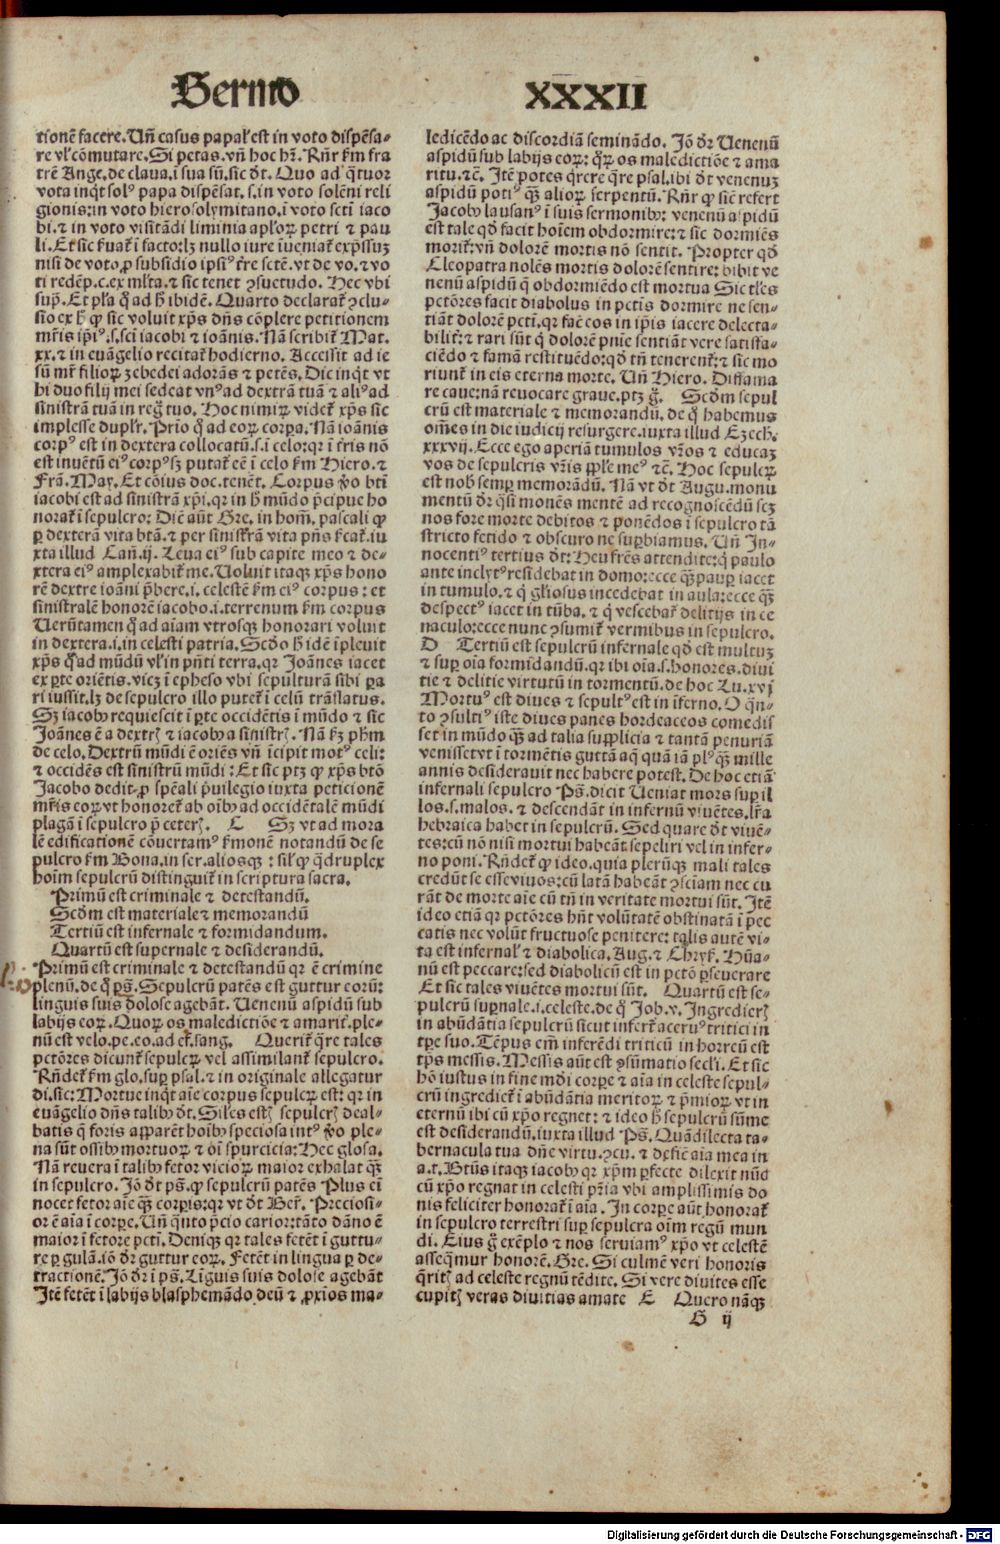 Sermo
XXXII
tionē facere. Uñ casus papal̕ est in voto dispēsa⸗
re vl̕ cōmutare. Si petas. vñ hoc hr̄. Rñr̄ ẜm fra
trē Ange. de claua. i sua sū. sic dt̄. Quo ad q̈tuor
vota inq̈t solꝰ papa dispēsat. s. in voto solēni reli
gionis: in voto hierosolymitano. ī voto scti iaco
bi. ⁊ in voto visitādi liminia apl̕oꝝ petri ⁊ pau
li. Et sic ẜuat̄ ī facto: lꝫ nullo iure īueniat̄ exp̄ssuꝫ
nisi de voto ꝓ subsidio ipsiꝰ tr̄re sctē. vt de vo. ⁊ vo
ti redēp. c. ex ml̕ta. ⁊ sic tenet ꝯsuetudo. Hec vbi
sup̄. Et pl̕a q̄ ad h̄ ibidē. Quarto declarat̄ ꝯclu⸗
sio ex h̄ ꝙ sic voluit xp̄s dn̄s cōplere petitionem
mr̄is ip̄iꝰ. s. sci iacobi ⁊ ioānis. Nā scribit̄ Mat.
xx. ⁊ in euāgelio recitat̄ hodierno. Accessit ad ie
sū mr̄ filioꝝ zebedei adorās ⁊ petēs. Dic inq̈t vt
hi duo filij mei sedeāt vnꝰ ad dextrā tuā ⁊ aliꝰ ad
sinistrā tuā in reg̊ tuo. Hoc nimiꝝ videt̄ xp̄s sic
implesse dupl̕r. Prīo q̄ ad eoꝝ corpa. Nā ioānis
corpꝰ est in dextera collocatū. s. ī celo: qr ī tr̄ris nō
est inuētū eiꝰ corpꝰ sꝫ putat̄ eē ī celo ẜm Hiero. ⁊
Frā. May. Et cōius doc. tenēt. Corpus v̊o bti
iacobi est ad sinistrā xp̄i. qr in h̄ mūdo p̄cipue ho
norat̄ ī sepulcro: Dic̄ aūt Gre. in hom̄. pascali ꝙ
ꝑ dexterā vita btā. ⁊ per sinistrā vita pn̄s ẜcat̄. iu
xta illud Cañ. ij. Leua eiꝰ sub capite meo ⁊ de⸗
xtera eiꝰ amplexabit̄ me. Uoluit itaqꝫ xp̄s hono
rē dextre ioāni p̄bere. i. celestē ẜm eiꝰ corpus: et
sinistralē honorē iacobo. i. terrenum ẜm corpus
Uerūtamen q̄ ad aīam vtrosqꝫ honorari voluit
in dextera. i. in celesti patria. Scd̄o h̄ idē īpleuit
xp̄s q̄ ad mūdū vl̕ in pn̄ti terra. qr Joānes iacet
ex ꝑte oriētis. vicꝫ ī epheso vbi sepulturā sibi pa
ri iussit. lꝫ de sepulcro illo putet̄ ī celū trāslatus.
Sꝫ iacobꝰ requiescit ī ꝑte occidētis ī mūdo ⁊ sic
Joānes ē a dextr̄ ⁊ iacobꝰ a sinistr̄. Nā ẜꝫ phm̄
de celo. Dextrū mūdi ē oriēs vñ īcipit motꝰ celi:
⁊ occidēs est sinistrū mūdi: Et sic ptꝫ ꝙ xp̄s btō
Jacobo dedit ꝓ spēali p̄uilegio iuxta peticionē
mr̄is eoꝝ vt honoret̄ ab oībꝰ ad occidētalē mūdi
plagā ī sepulcro p̄ ceter̄. C Sꝫ vt ad mora
lē edificationē cōuertamꝰ ẜmonē notandū de se
pulcro ẜm Bona. in ser. aliosqꝫ: sil̕ ꝙ q̈druplex
hoīm sepulcrū distinguit̄ in scriptura sacra.
Primū est criminale ⁊ detestandū.
Scd̄m est materiale ⁊ memorandū
Tertiū est infernale ⁊ formidandum.
Quartū est supernale ⁊ desiderandū.
Primū est criminale ⁊ detestandū qr ē crimine
plenū. de q̊ ps̄. Sepulcrū patēs est guttur eorū:
linguis suis dolose agebāt. Uenenū aspidū sub
labijs eoꝝ. Quoꝝ os maledictiōe ⁊ amarit̄. ple⸗
nū est velo. pe. eo. ad ef. sang. Querit̄ q̈re tales
pctōres dicunt̄ sepulcꝝ vel assimilant̄ sepulcro.
Rñdet̄ ẜm glo. suꝑ psal. ⁊ in originale allegatur
di. sic: Mortue inq̈t aīe corpus sepulcꝝ est: qr in
euāgelio dn̄s talibꝰ dt̄. Siles estꝭ sepulcrꝭ deal⸗
batis q̄ foris apparēt hoībꝰ speciosa intꝰ v̊o ple⸗
na sūt ossibꝰ mortuoꝝ ⁊ oī spurcicia: Hec glosa.
Nā reuera ī talibꝰ fetor vicioꝝ maior exhalat q̄ꝫ
in sepulcro. Jō dt̄ ps̄. ꝙ sepulcrū patēs Plus eī
nocet fetor aīe q̄ꝫ corpis: qr vt dt̄ Ber̄. Preciosi⸗
or ē aīa ī corpe. Uñ q̈nto p̄cio carior: tāto dāno ē
maior ī fetore pctī. Deniqꝫ qr tales fetēt ī guttu⸗
re ꝑ gulā. iō dr̄ guttur eoꝝ. Fetēt in lingua ꝑ de⸗
tractionē. Jō dr̄ ī ps̄. Liguis suis dolose agebāt
Itē fetēt ī labijs blasphemādo deū ⁊ ꝓxīos ma⸗
ledicēdo ac discordiā seminādo. Jō dr̄ Uenenū
aspidū sub labijs eoꝝ: q̊ꝝ os maledictiōe ⁊ ama
ritu. ⁊c̄. Itē potes q̈rere q̈re psal. ibi dt̄ venenuꝫ
aspidū potiꝰ q̄ꝫ alioꝝ serpentū. Rñr̄ ꝙ sic refert
Jacobꝰ lausanꝰ ī suis sermonibꝰ: venenū aspidū
est tale qd̄ facit hoīem obdormire: ⁊ sic dormiēs
morit̄: vñ dolorē mortis nō sentit. Propter qd̄
Cleopatra nolēs mortis dolorē sentire: bibit ve
nenū aspidū q̄ obdormiēdo est mortua Sic tl̕es
pctōres facit diabolus in pctīs dormire ne sen⸗
tiāt dolorē pctī. qr fac̄ eos in ip̄is iacere delecta⸗
bilit̄: ⁊ rari sūt q̄ dolorē pn̄ie sentiāt vere satisfa⸗
ciēdo ⁊ famā restituēdo: qd̄ tn̄ tenerent̄: ⁊ sic mo
riunt̄ in eis eterna morte. Uñ Hiero. Diffama
re caue: nā reuocare graue. ptꝫ g̊. Scd̄m sepul
crū est materiale ⁊ memorandū. de q̊ habemus
om̄es in die iudicij resurgere. iuxta illud Ezech.
xxxvij. Ecce ego aperiā tumulos vr̄os ⁊ educaꝫ
vos de sepulcris vr̄is ppl̕e meꝰ ⁊c̄. Hoc sepulcꝝ
est nob̄ semꝑ memorādū. Nā vt dt̄ Augu. monu
mentū dr̄ q̈si monēs mentē ad recognoscēdū scꝫ
nos fore morte debitos ⁊ ponēdos ī sepulcro tā
stricto fetido ⁊ obscuro ne suꝑbiamus. Uñ In⸗
nocentiꝰ tertius dt̄: Heu fr̄es attendite: q̄ paulo
ante inclytꝰ residebat in domo: ecce q̄ꝫ paup̄ iacet
in tumulo. ⁊ q̄ gl̕iosus incedebat in aula: ecce q̄ꝫ
despectꝰ iacet in tūba. ⁊ q̄ vescebat̄ delitijs in ce
naculo: ecce nunc ꝯsumit̄ vermibus in sepulcro.
D Tertiū est sepulcrū infernale qd̄ est multuꝫ
⁊ suꝑ oīa formidandū. qr ibi oīa. s. honores. diui
tie ⁊ delitie virtutū in tormentū. de hoc Lu. xvj
Mortuꝰ est diues ⁊ sepultꝰ est in īferno. O q̈n⸗
to ꝯsultiꝰ iste diues panes hordeaceos comedis
set in mūdo q̄ꝫ ad talia supplicia ⁊ tantā penuriā
venisset vt ī tormētis guttā aq̄ quā iā plꝰ q̄ꝫ mille
annis desiderauit nec habere potest. De hoc etiā
infernali sepulcro Ps̄. dicit Ueniat mors suꝑ il
los. s. malos. ⁊ descendāt in infernū viuētes. lr̄a
hebraica habet in sepulcrū. Sed quare dt̄ viuē⸗
tes: cū nō nisi mortui habeāt sepeliri vel in infer⸗
no poni. Rñdet̄ ꝙ ideo. quia plerūqꝫ mali tales
credūt se esse viuos: cū latā habeāt ꝯsciam nec cu
rāt de morte aīe cū tn̄ in veritate mortui sūt. Itē
ideo etiā qr pctōres hn̄t volūtatē obstinatā ī pec
catis nec volūt fructuose penitere: talis autē vi⸗
ta est infernal̕ ⁊ diabolica. Aug. ⁊ Chrys̄. Hūa⸗
nū est peccare: sed diabolicū est in pctō ꝑseuerare
Et sic tales viuētes mortui sūt. Quartū est se⸗
pulcrū suꝑnale. i. celeste. de q̊ Job. v. Ingredierꝭ
in abūdātia sepulcrū sicut infert̄ aceruꝰ tritici in
tꝑe suo. Tēpus em̄ inferēdi triticū in horreū est
tp̄s messis. Messis aūt est ꝯsūmatio secl̕i. Et sic
hō iustus in fine mdi corpe ⁊ aīa in celeste sepul⸗
crū ingredict̄ ī abūdātia meritoꝝ ⁊ p̄mioꝝ vt in
eternū ibi cū xp̄o regnet: ⁊ ideo h̄ sepulcrū sūme
est desiderandū. iuxta illud Ps̄. Quā dilecta ta⸗
bernacula tua dn̄e virtu. ꝯcu. ⁊ defic̄ aīa mea in
a. t. Btūs itaqꝫ iacobꝰ qr xp̄m ꝑfecte dilexit nūc
cū xp̄o regnat in celesti pr̄ia vbi amplissimis do
nis feliciter honorat̄ ī aīa. In corpe aūt honorat̄
in sepulcro terrestri suꝑ sepulcra oīm regū mun
di. Eius g̊ exēplo ⁊ nos seruiamꝰ xp̄o vt celestē
asseq̈mur honorē. Gre. Si culmē veri honoris
q̈ritꝭ ad celeste regnū tēdite. Si vere diuites esse
cupitꝭ veras diuitias amate E Quero nāqꝫ
G ij
Digitalisierung gefördert durch die Deutsche Forschungsgemeinschaft - DFG